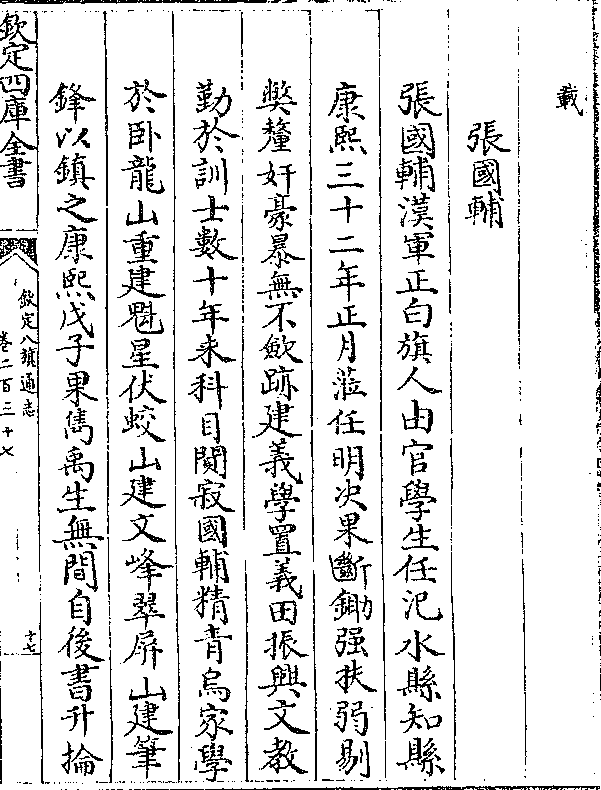 載
張國輔
張國輔漢軍正白旗人由官學生任汜水縣知縣
康熙三十二年正月蒞任明决果斷鋤强扶弱剔
弊釐奸豪暴無不歛跡建義學置義田振興文教
勤於訓士數十年来科目闃寂國輔精青烏家學
於卧龍山重建魁星伏蛟山建文峰翠屏山建筆
鋒以鎮之康熙戊子果雋禹生無間自後書升掄
欽定四庫全書
欽定八旗通志
卷二百三十七
十七